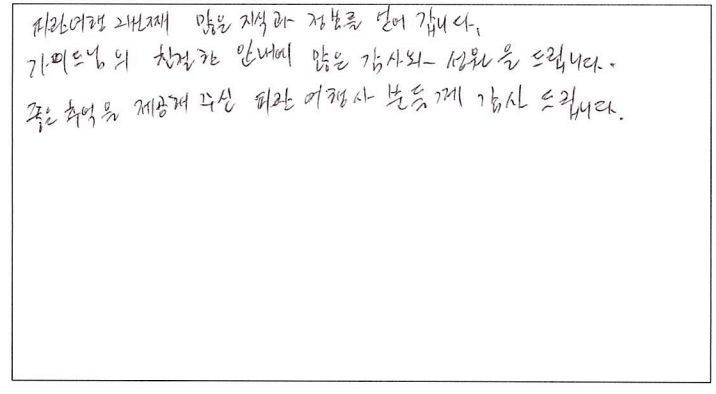 피란여행 2번째 많은 지식과 정보를 얻어 갑니다.
가이드님의 친절한 안내에 많은 감사와 성원을 드립니다.
좋은 추억을 제공해 주신 피란 여행사 분들께 감사 드립니다.